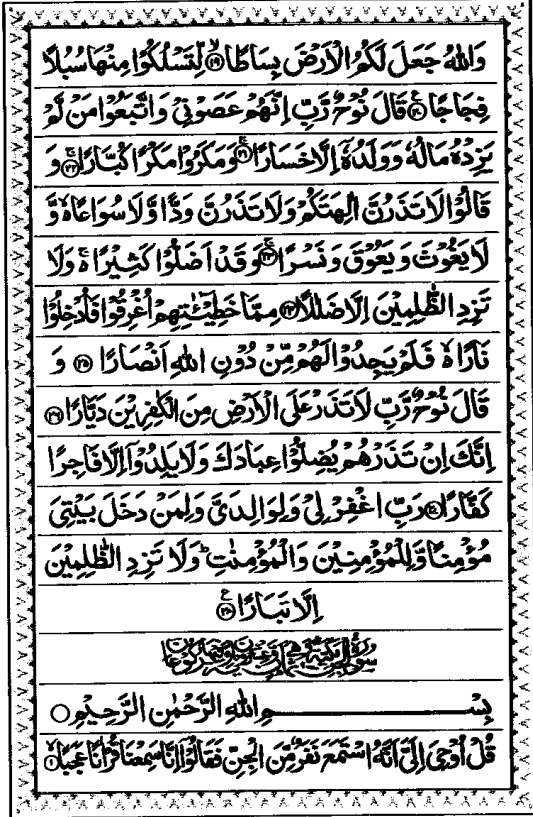 وَاللهُ جَعَلَ لَكُمُ الْاَرْضَ بِسَاطًا ﴿۱۹﴾ لِّتَسْلُكُوْا مِنْهَا سُبُلًا
فِجَاجًا ﴿۲۰﴾ قَالَ نُوْحٌ رَّبِّ اِنَّهُمْ عَصَوْنِيْ وَاتَّبَعُوْا مَنْ لَّمْ
يَزِدْهُ مَالُهٗ وَوَلَدُهٗٓ اِلَّا خَسَارًا ﴿۲۱﴾ وَمَكَرُوْا مَكْرًا كُبَّارًا ﴿۲۲﴾ وَ
قَالُوْا لَا تَذَرُنَّ اٰلِهَتَكُمْ وَلَا تَذَرُنَّ وَدًّا وَّلَا سُوَاعًا ۙ وَّ
لَا يَغُوْثَ وَيَعُوْقَ وَنَسْرًا ﴿۲۳﴾ وَقَدْ اَضَلُّوْا كَثِيْرًا ۚ وَلَا
تَزِدِ الظّٰلِمِيْنَ اِلَّا ضَلٰلًا ﴿۲۴﴾ مِمَّا خَطِيْٓـٰٔتِهِمْ اُغْرِقُوْا فَاُدْخِلُوْا
نَارًا ۙ فَلَمْ يَجِدُوْا لَهُمْ مِّنْ دُوْنِ اللهِ اَنْصَارًا ﴿۲۵﴾ وَ
قَالَ نُوْحٌ رَّبِّ لَا تَذَرْ عَلَى الْاَرْضِ مِنَ الْكٰفِرِيْنَ دَيَّارًا ﴿۲۶﴾
اِنَّكَ اِنْ تَذَرْهُمْ يُضِلُّوْا عِبَادَكَ وَلَا يَلِدُوْٓا اِلَّا فَاجِرًا
كَفَّارًا ﴿۲۷﴾ رَبِّ اغْفِرْ لِيْ وَلِوَالِدَيَّ وَلِمَنْ دَخَلَ بَيْتِيَ
مُؤْمِنًا وَّلِلْمُؤْمِنِيْنَ وَالْمُؤْمِنٰتِ ؕ وَلَا تَزِدِ الظّٰلِمِيْنَ
اِلَّا تَبَارًا ﴿۲۸﴾
بِسْمِ اللهِ الرَّحْمٰنِ الرَّحِيْمِ ○
قُلْ اُوْحِيَ اِلَيَّ اَنَّهُ اسْتَمَعَ نَفَرٌ مِّنَ الْجِنِّ فَقَالُوْٓا اِنَّا سَمِعْنَا قُرْاٰنًا عَجَبًا ﴿۱﴾